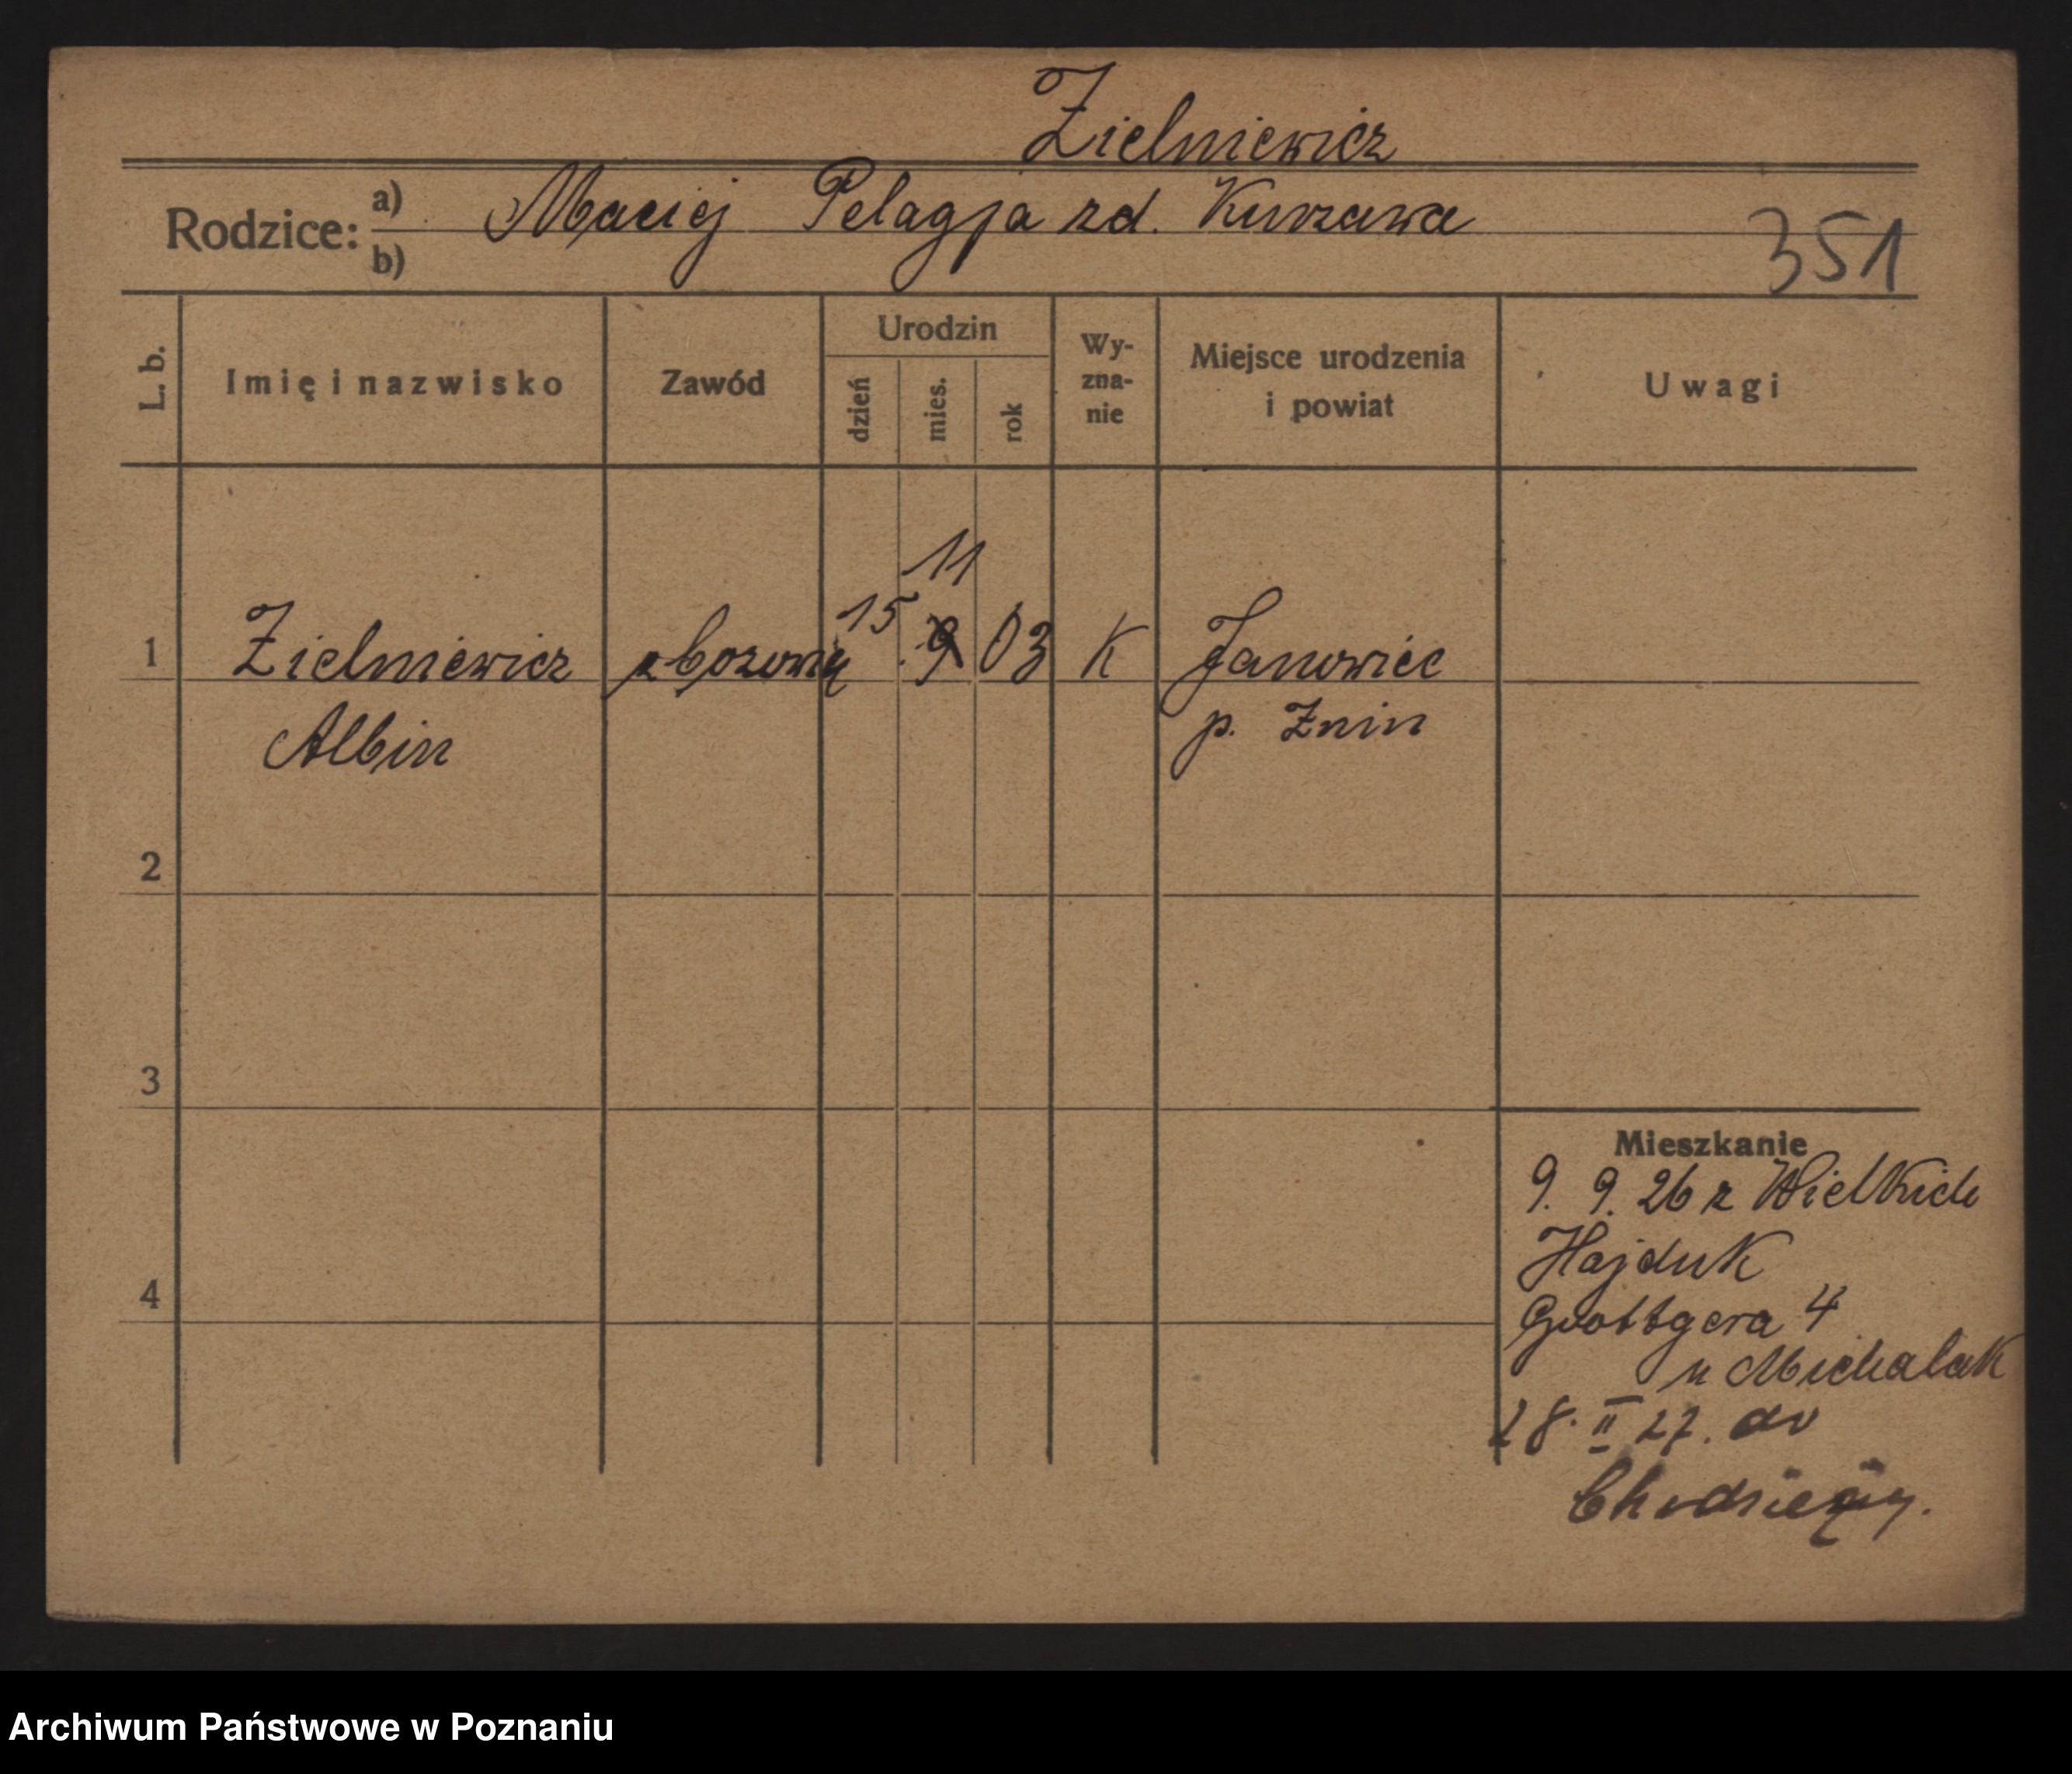 Zielniewicz
Rodzice: a) Maciej Pelagja zd. Kurzawa
b)
351
L. b. Imię i nazwisko Zawód Urodzin dzień mies. rok Wy-zna-nie Miejsce urodzenia i powiat Uwagi
11
1 Zielniewicz zbozowy 15 9 03 K Janowiec
Albin p. Znin
2
3
4
Mieszkanie
9. 9. 26 z Wielkich
Hajduk
Grottgera 4
u Michalak
28. II 27. do
Chodzieży.
Archiwum Państwowe w Poznaniu